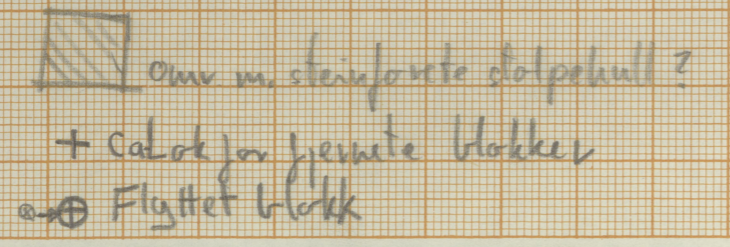 omr. m. steinforete stolpehull?
+ Ca Lok for fjernete blokker
Flyttet blokk